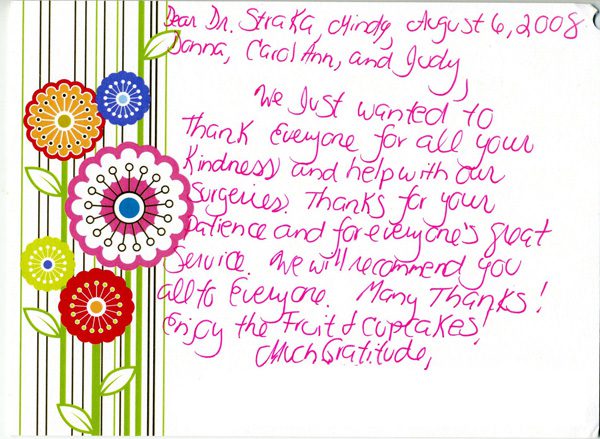 Dear Dr. Straka, Mindy, August 6, 2008
Donna, Carol Ann, and Judy,
We Just wanted to
Thank Everyone for all your
Kindness and help with our
Surgeries. Thanks for your
patience and for everyone's great
Service. We will recommend you
all to Everyone. Many Thanks!
Enjoy the Fruit & cupcakes!
Much Gratitude,